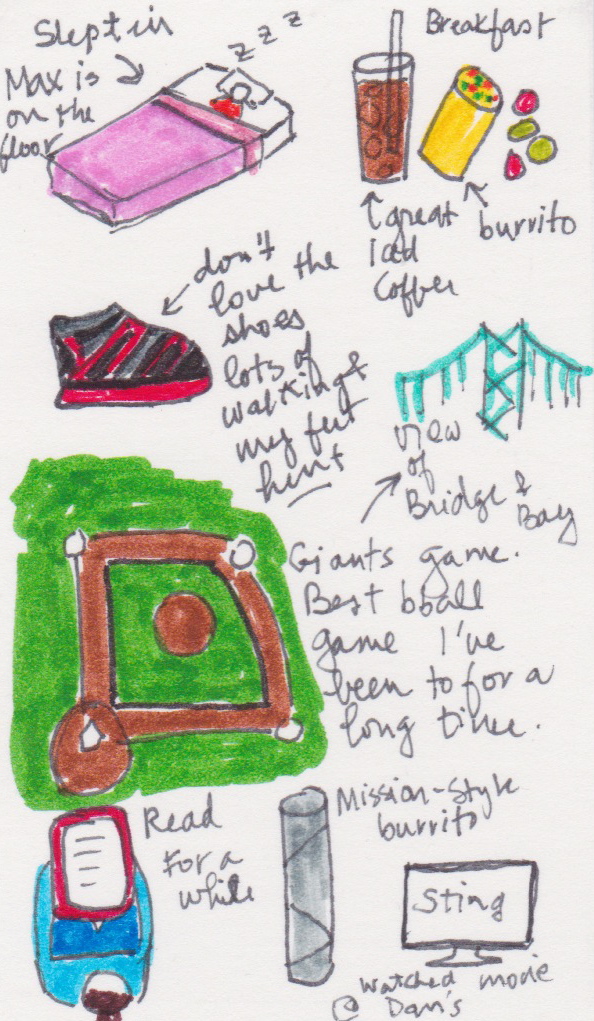 Slept in
Max is
on the
floor
z z z
Breakfast
great
Iced
Coffee
burrito
don't
love the
shoes
lots of
walking &
my feet
hurt
view
of
Bridge &
Bay
Giants game.
Best bball
game I've
been to for a
long time.
Read
for a
while
Mission-Style
burrito
Sting
Watched movie
@ Dan's